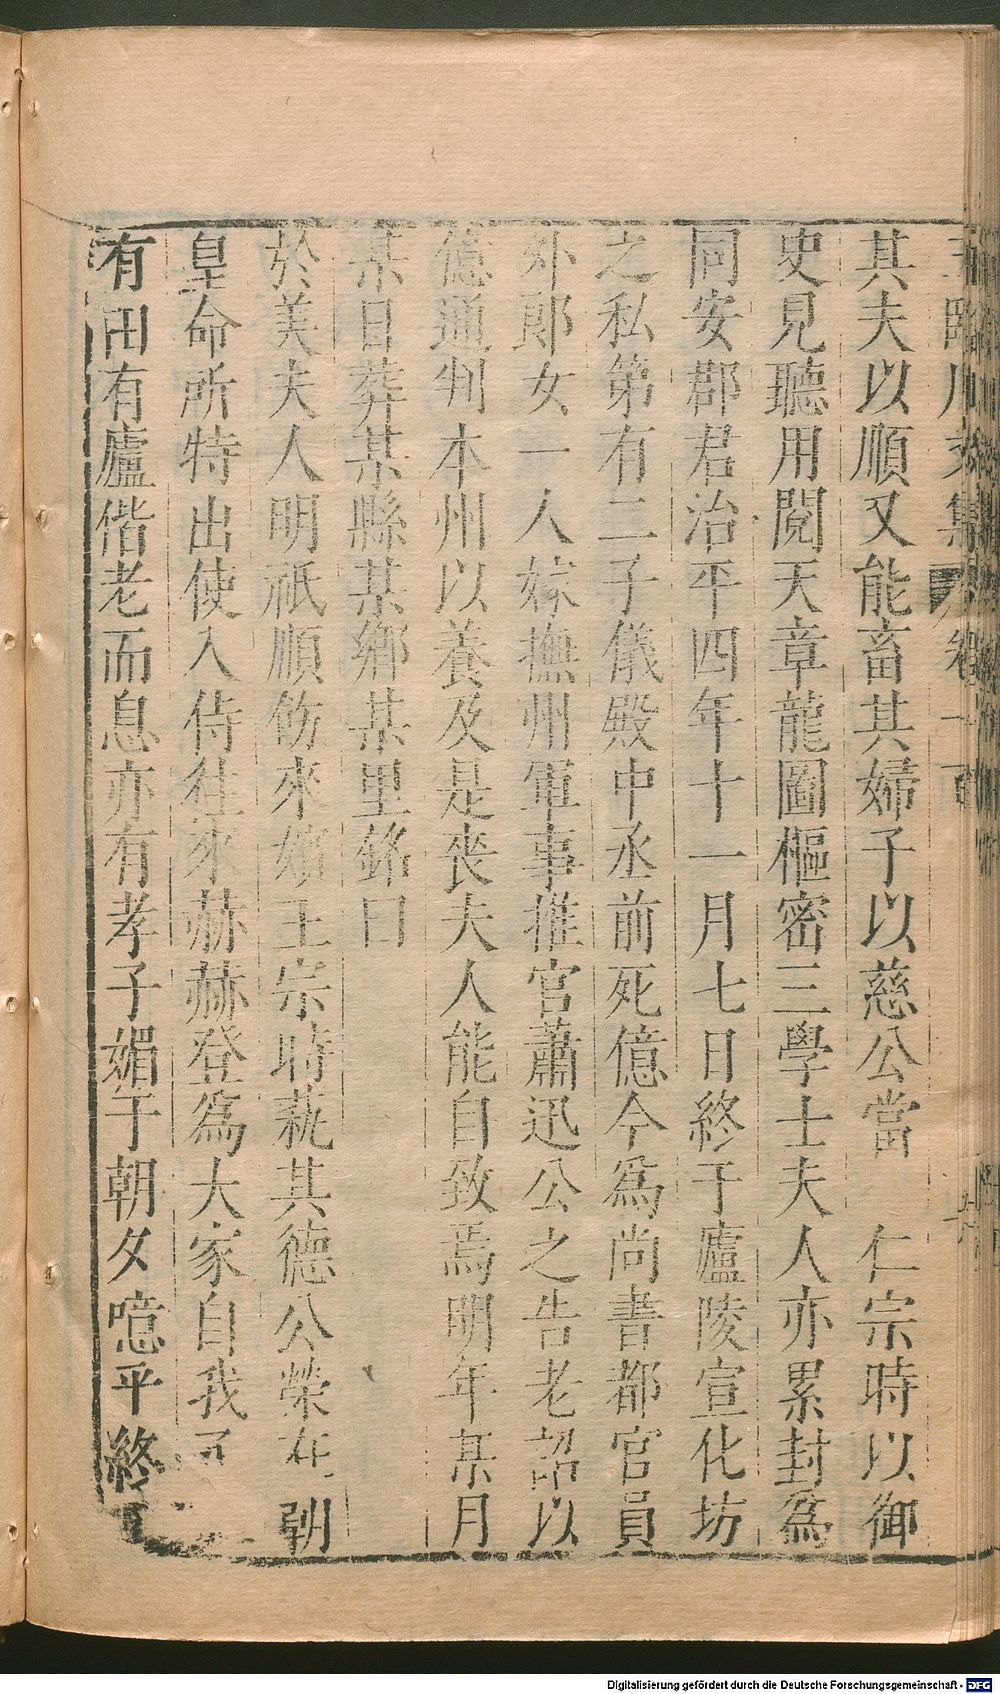 其夫以順又能畜其婦子以慈公當　仁宗時以御
史見聽用閱天章龍圖樞密三學士夫人亦累封爲
同安郡君治平四年十一月七日終于廬陵宣化坊
之私第有二子儀殿中丞前死億今爲尚書都官員
外郎女一人嫁撫州軍事推官蕭迅公之告老詔以
億通判本州以養及是喪夫人能自致焉明年某月
某日葬某縣某鄉某里銘曰
於美夫人明祇順飭來嬪王宗時蓺其德公榮在朝
皇命所特出使入侍往來赫赫登爲大家自我
有田有廬偕老而息亦有孝子媚于朝夕噫乎終
Digitalisierung gefördert durch die Deutsche Forschungsgemeinschaft - DFG